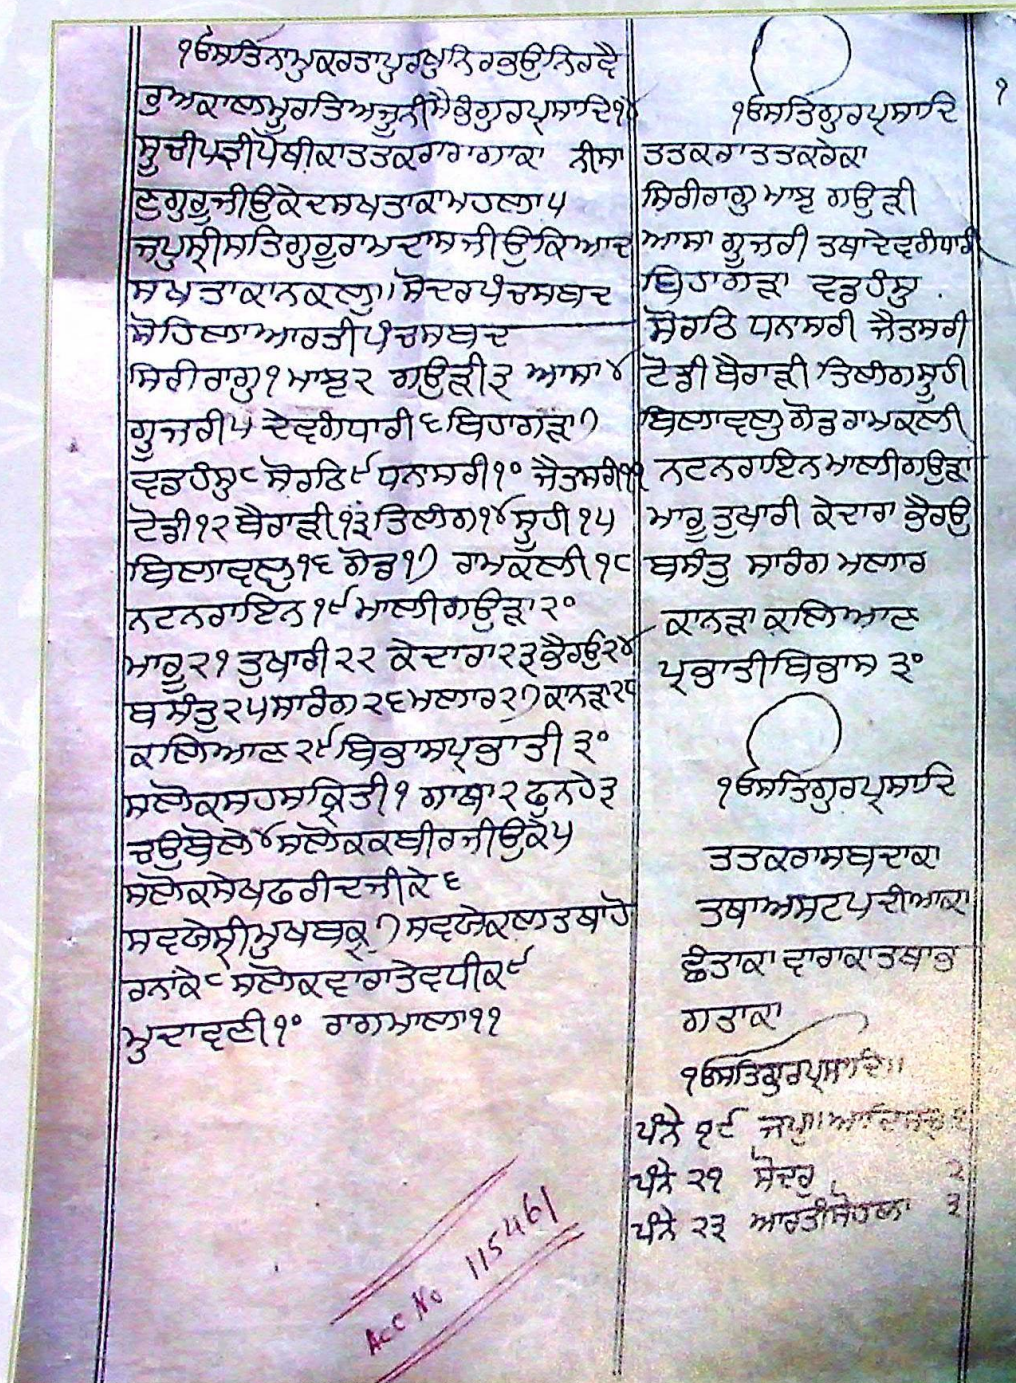 ੧ਓਸਤਿਨਾਮੁਕਰਤਾਪੁਰਖੁਨਿਰਭਉਨਿਰਵੈ
ਰੁਅਕਾਲਮੂਰਤਿਅਜੂਨੀਸੈਭੰਗੁਰਪ੍ਰਸਾਦਿ੧
ਸੂਚੀਪੜੀਪੋਥੀਕਾਤਤਕਰਾਰਾਗਾਕਾ ਨੀਸਾ
ਣੁਗੁਰੂਜੀਉਕੇਦਸਖਤਾਕਾਮਹਲਾ੫
ਜਪੁਸ੍ਰੀਸਤਿਗੁਰੂਰਾਮਦਾਸਜੀਉਕਿਆਦ
ਸਖਤਾਕਾਨਕਲੁ॥ਸੋਦਰਪੰਚਸਬਦ
ਸੋਹਿਲਾਆਰਤੀਪੰਚਸਬਦ
ਸਿਰੀਰਾਗੁ੧ਮਾਝ੨ ਗਉੜੀ੩ ਆਸਾ੪
ਗੂਜਰੀ੫ ਦੇਵਗੰਧਾਰੀ੬ਬਿਹਾਗੜਾ੭
ਵਡਹੰਸੁ੮ ਸੋਰਠਿ੯ਧਨਾਸਰੀ੧੦ ਜੈਤਸਰੀ੧੧
ਟੋਡੀ੧੨ਬੈਰਾੜੀ੧੩ਤਿਲੰਗ੧੪ਸੂਹੀ੧੫
ਬਿਲਾਵਲੁ੧੬ ਗੋਡ੧੭ ਰਾਮਕਲੀ੧੮
ਨਟਨਰਾਇਨ੧੯ਮਾਲੀਗਉੜਾ੨੦
ਮਾਰੂ੨੧ਤੁਖਾਰੀ੨੨ ਕੇਦਾਰਾ੨੩ਭੈਰਉ੨੪
ਬਸੰਤੁ੨੫ਸਾਰੰਗ੨੬ਮਲਾਰ੨੭ਕਾਨੜਾ੨੮
ਕਲਿਆਨ੨੯ਬਿਭਾਸਪ੍ਰਭਾਤੀ੩੦
ਸਲੋਕਸਹਸਕ੍ਰਿਤੀ੧ ਗਾਥਾ੨ਫੁਨਹੇ੩
ਚਉਬੋਲੇ੪ਸਲੋਕਕਬੀਰਜੀਉਕੇ੫
ਸਲੋਕਸੇਖਫਰੀਦਜੀਕੇ੬
ਸਵਯੇਸ੍ਰੀਮੁਖਬਾਕ੍ਯ੭ਸਵਯੇਕਲਾਤਥਾਹੋ
ਰਨਾਕੇ੮ਸਲੋਕਵਾਰਾਤੇਵਧੀਕ੯
ਮੁਦਾਵਣੀ੧੦ ਰਾਗਮਾਲਾ੧੧
੧
੧ਓਸਤਿਗੁਰਪ੍ਰਸਾਦਿ
ਤਤਕਰਾਤਤਕਰੇਕਾ
ਸਿਰੀਰਾਗੁ ਮਾਝ ਗਉੜੀ
ਆਸਾ ਗੂਜਰੀ ਤਥਾਦੇਵਗੰਧਾਰੀ
ਬਿਹਾਗੜਾ ਵਡਹੰਸੁ
ਸੋਰਠਿ ਧਨਾਸਰੀ ਜੈਤਸਰੀ
ਟੋਡੀ ਬੈਰਾੜੀ ਤਿਲੰਗਸੂਹੀ
ਬਿਲਾਵਲੁ ਗੋਡ ਰਾਮਕਲੀ
ਨਟਨਰਾਇਨ ਮਾਲੀਗਉੜਾ
ਮਾਰੂ ਤੁਖਾਰੀ ਕੇਦਾਰਾ ਭੈਰਉ
ਬਸੰਤੁ ਸਾਰੰਗ ਮਲਾਰ
ਕਾਨੜਾ ਕਲਿਆਨ
ਪ੍ਰਭਾਤੀਬਿਭਾਸ ੩੦
੧ਓਸਤਿਗੁਰਪ੍ਰਸਾਦਿ
ਤਤਕਰਾਸਬਦਾਕਾ
ਤਥਾਅਸਟਪਦੀਆਕਾ
ਛੰਤਾਕਾਵਾਰਾਕਾਤਥਾਭ
ਗਤਾਕਾ
੧ਓਸਤਿਗੁਰਪ੍ਰਸਾਦਿ॥
ਪੰਨੇ ੧੯
ਪੰਨੇ ੨੧ ਸੋਦਰੁ ੨
ਪੰਨੇ ੨੩ ਆਰਤੀਸੋਹਲਾ ੩
Acc No 115461